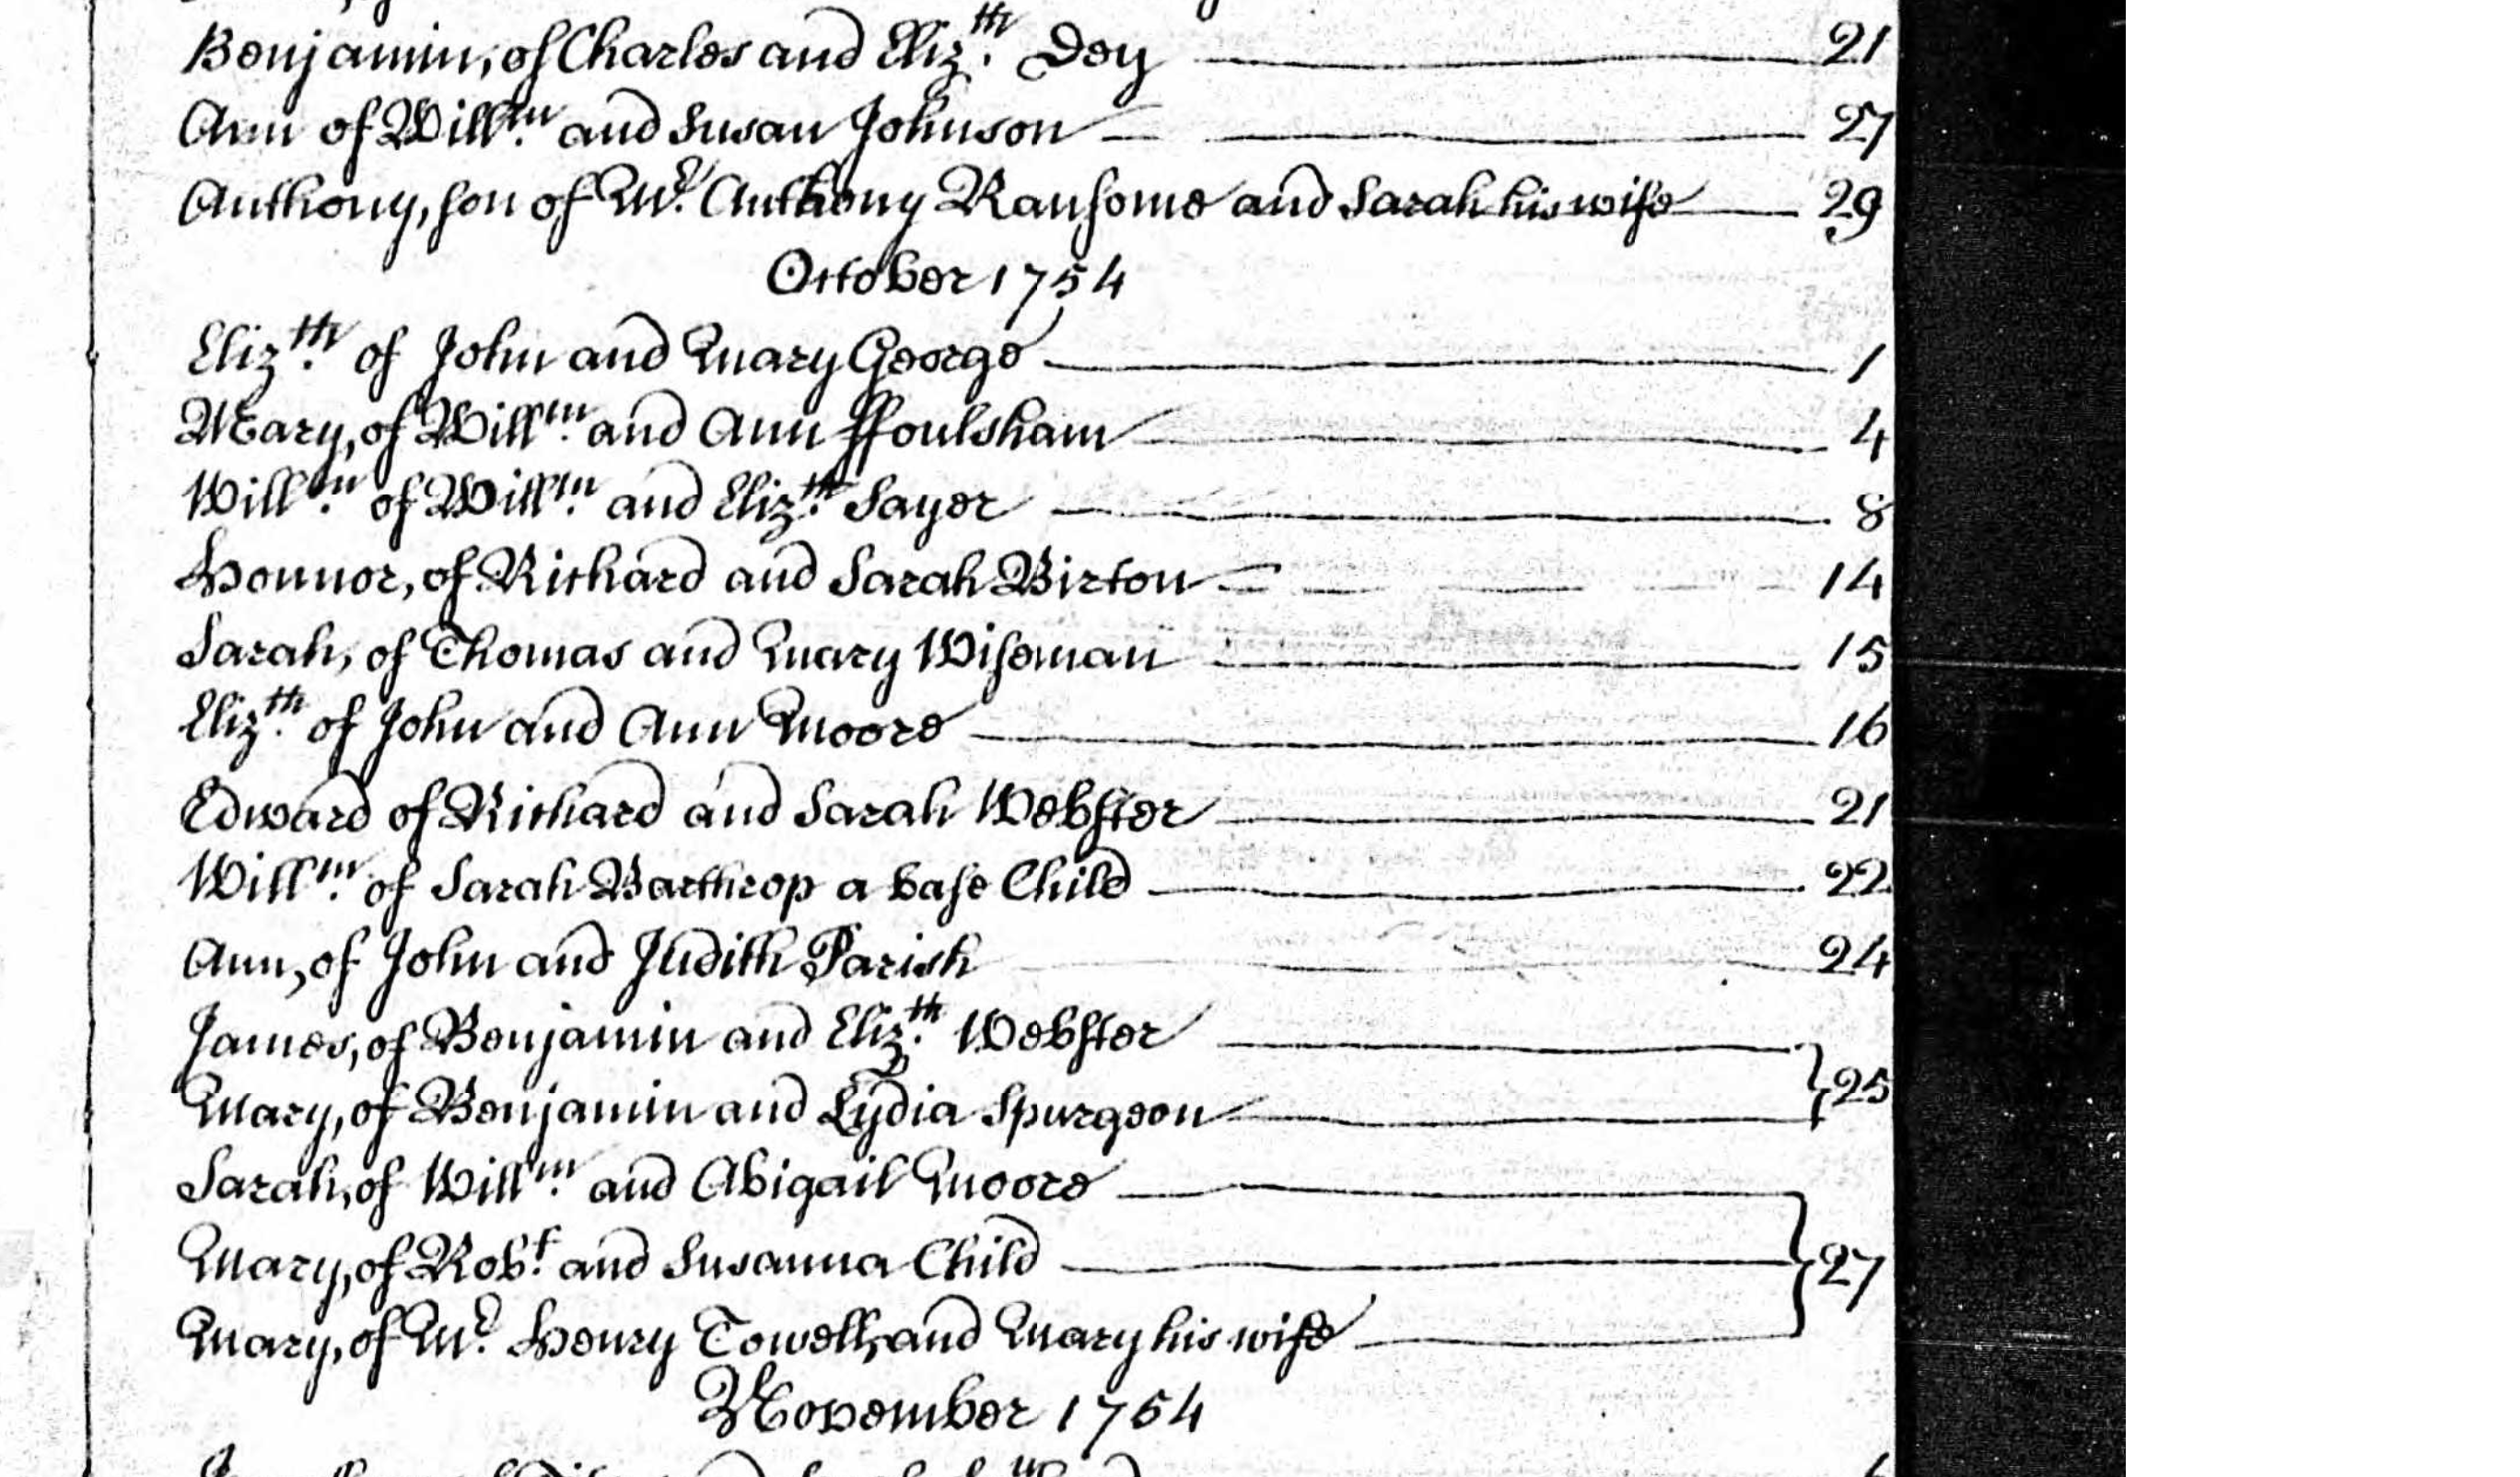 Benjamin, of Charles and Eliz.th Dey 21
Ann of Will.m and Susan Johnson 27
Anthony, son of Mr. Anthony Ransome and Sarah his wife 29
October 1754
Eliz.th of John and Mary George 1
Mary, of Will.m and Ann ffoulsham 4
Will.m of Will.m and Eliz.th Sayer 8
Honnor, of Richard and Sarah Birton 14
Sarah, of Thomas and Mary Wiseman 15
Eliz.th of John and Ann Moore 16
Edward of Richard and Sarah Webster 21
Will.m of Sarah Barthrop a base Child 22
Ann, of John and Judith Parish 24
James, of Benjamin and Eliz.th Webster
Mary, of Benjamin and Lydia Spurgeon } 25
Sarah, of Will.m and Abigail Moore
Mary, of Rob.t and Susanna Child } 27
Mary, of Mr. Henry Towell, and Mary his wife
November 1754